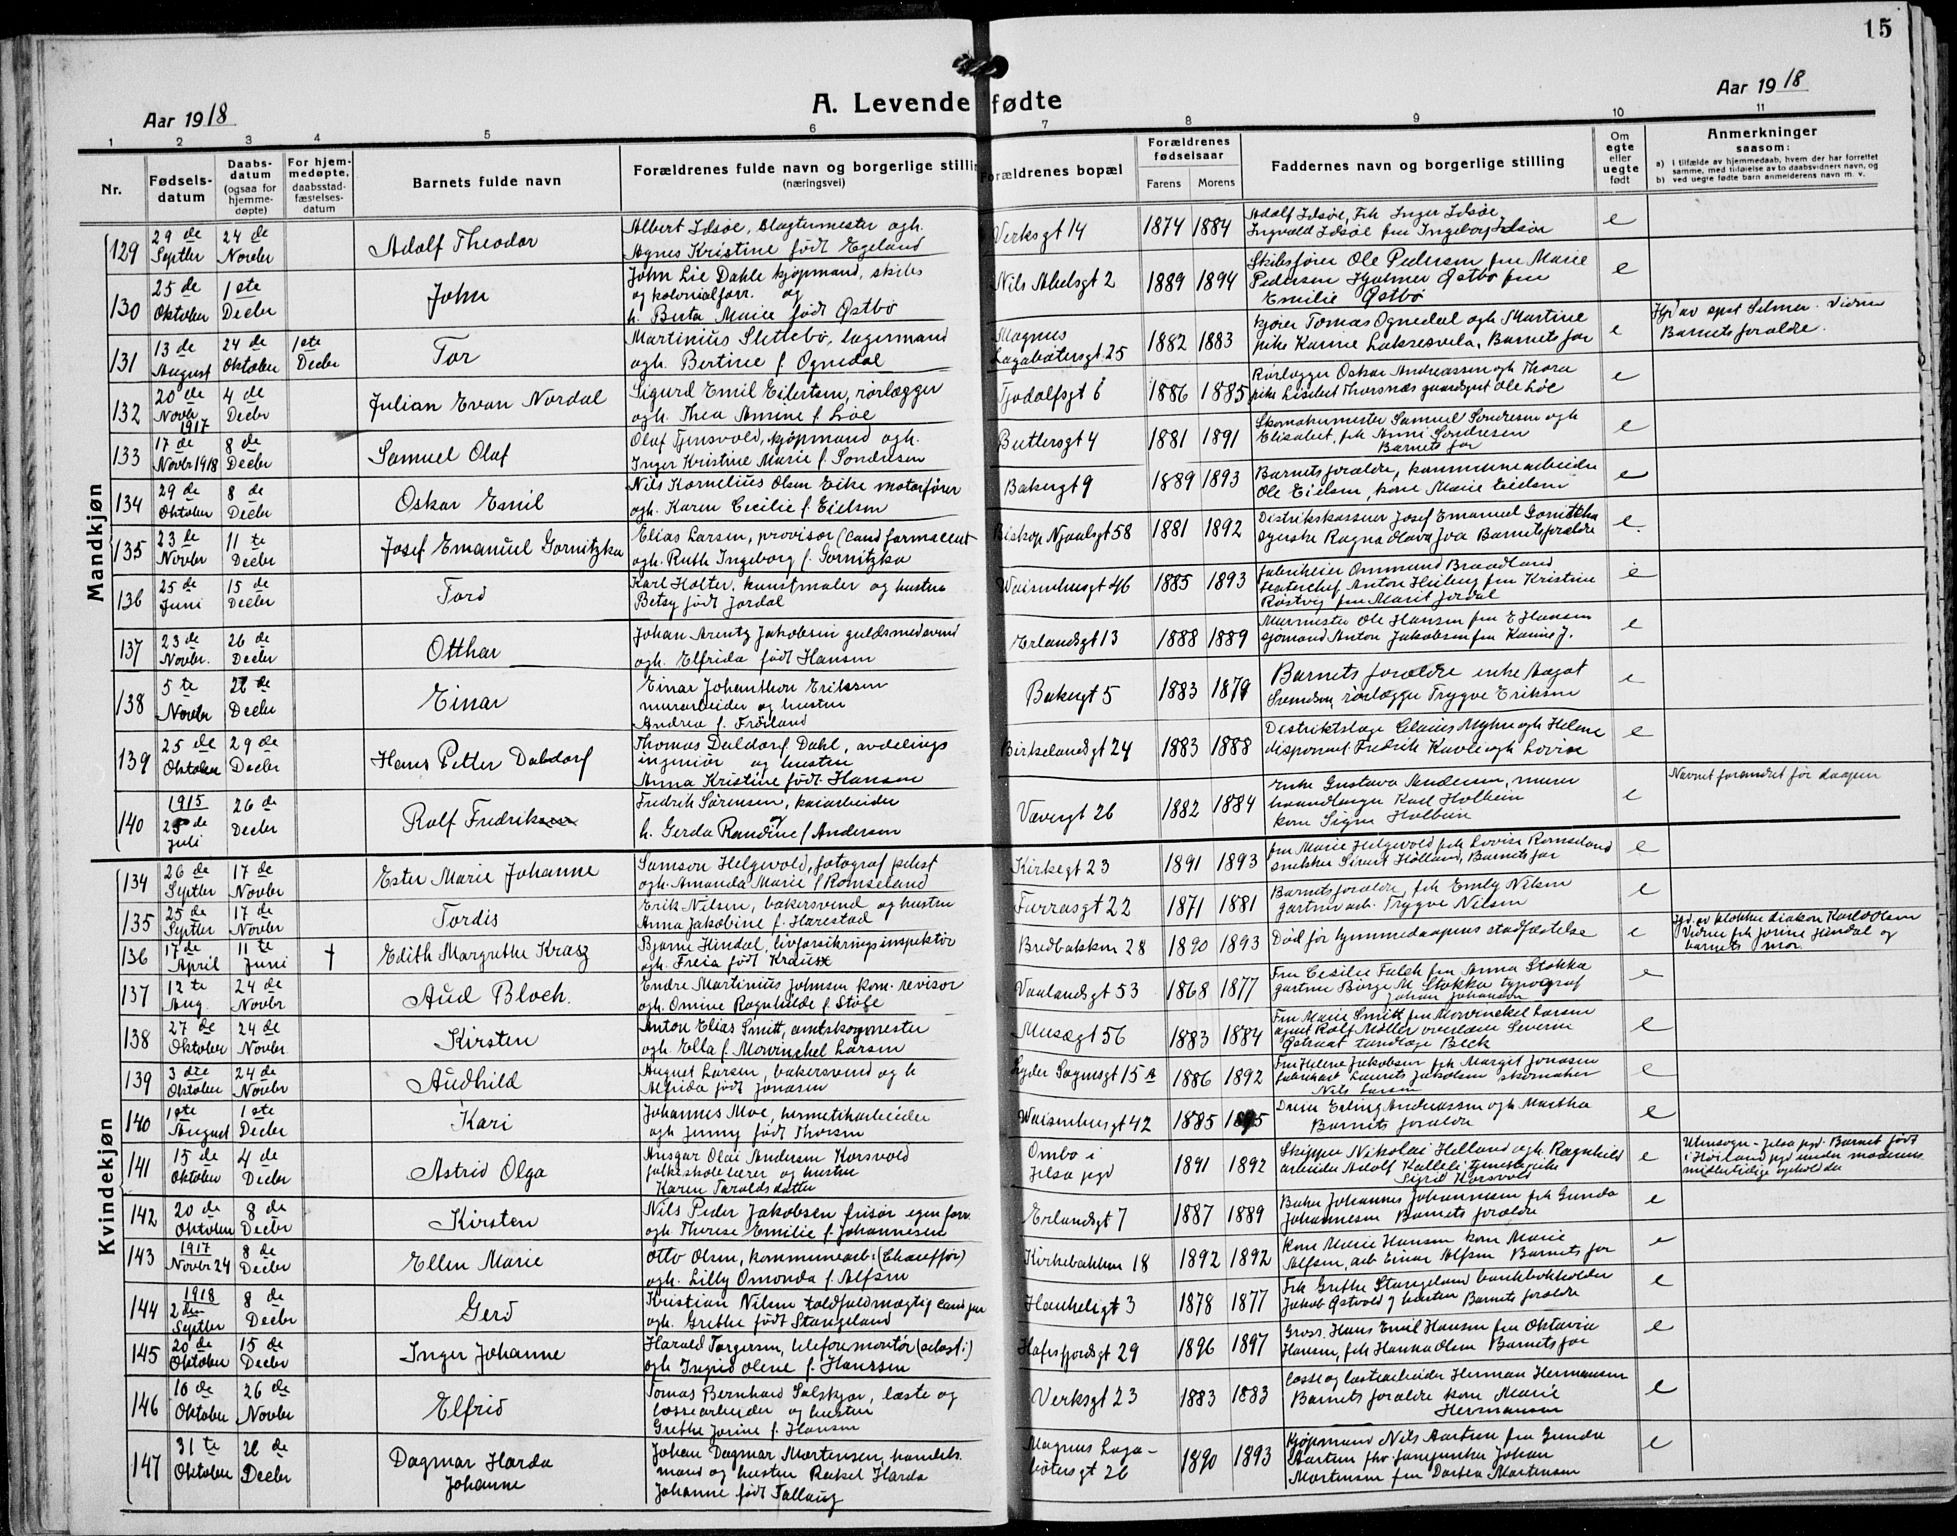 15
Aar 1918
A. Levende fødte
Aar 1918
1 2 3 4 5 6 7 8 9 10 11
Nr.
Fødsels-
datum
Daabs-
datum
(ogsaa for
hjemme-
døpte)
For hjem-
medøpte,
daabsstad-
fæstelses-
datum
Barnets fulde navn
Forældrenes fulde navn og borgerlige stilling
(næringsvei)
Forældrenes bopæl
Forældrenes
fødselsaar
Farens Morens
Faddernes navn og borgerlige stilling
Om
egte
eller
uegte
født
Anmerkninger
saasom:
a) I tilfælde av hjemmedaab, hvem der har forrettet
samme, med tilføielse av to daabsvidners navn, og
b) ved uegte fødte barn anmelderens navn m. v.
Mandkjøn
129 29de Septbr 24de Novbr Adolf Theodor
Albert Idsøe, slagtermester og h.
Agnes Kristine født Egeland
Verksgt 14 1874 1884
Adolf Idsøe, frk Inger Idsøe
Ingvald Idsøe fru Ingeborg Idsøe e
130 25de Oktober 1ste Decbr John
John Lie Dahle kjøpmand, skibs
og kolonialforr. og
h. Berta Marie født Østbø
Nils Abelsgt 2 1889 1894
Skibsfører Ole Pedersen fru Marie
Pedersen Hjalmer Østbø fru
Emilie Østbø e
131 13de August 24de Oktober 1ste Decbr Tor
Martinius Slettebø, lagermand
og h. Bertine f. Ognedal
Magnus
Lagabøtersgt. 25 1882 1883
kjører Tomas Ognedal og h Martine
pike Karine Laksesvela, Barnets far e
Barnets forældre.
132 20de Novbr 1917 4de Decbr Julian Evan Nordal
Sigurd Emil Eilertsen, rørlægger
og h. Thea Amine f. Løe
Tjodolfsgt 6 1886 1885
Rørlægger Oskar Andreassen og h Thora
pike Lisebet Thorsnæs gaardsgut Ole Løe e
133 17de Novbr 1918 8de Decbr Samuel Olaf
Olaf Tjensvold, kjøpmand og h.
Inger Kristine Marie f. Sondresen
Butlersgt 4 1881 1891
Skomakermester Samuel Sondresen og h
Elisabet, frk Anni Sondresen
Barnets far e
134 29de Oktober 8de Decbr Oskar Emil
Nils Kornelius Olsen Eike motorfører
og h. Karen Cecilie f. Eielsen
Bakergt 9 1889 1893
Barnets forældre, kommunearbeider
Ole Eielsen, kone Marie Eielsen e
135 23de Novbr 11te Decbr Josef Emanuel Gornitzka
Elias Larsen, provisor (cand farmaceut
og h. Ruth Ingeborg f. Gornitzka
Biskop Njaalsgt 58 1881 1892
Distrikskasserer Josef Emanuel Gornitzka
syerske Ragna Barnets forældre e
136 25de Juni 15de Decbr Tord
Karl Holter, kunstmaler og hustru
Betsy født Jordal
Waisenhusgt 46 1885 1893
fabrikeier Ommund Braadland
teaterchef Anton Heiberg fru Kristine
Røstvig fru Marit Jordal e
137 23de Novbr. 26de Decbr Otthar
Johan Arentz Jakobsen guldsmedsvend
og h. Elfrida født Hansen
Erlandsgt 13 1888 1889
Murmester Ole Hansen fru E Hansen
sjømand Anton Jakobsen fru Karine J. e
138 5te Novbr 26de Decbr Einar
Einar Johanthon Eriksen
murarbeider og hustru
Andrea f. Frøiland
Bakergt 5 1883 1879
Barnets forældre enke Aagot
Svendsen rørlægger Trygve Eriksen e
139 25de Oktober 29de Decbr Hans Petter Daldorf
Thomas Daldorf Dahl, avdelings
ingeniør og hustru
Anna Kristine født Hansen
Birkelandsgt 24 1883 1888
Distriktslæge Claus Myhre og h Helene
disponent Fredrik Kavli og h Lovise e
140 1915 25de Juli 26de Decbr Rolf Fredriksen
Fredrik Sørensen, kaiarbeider
h. Gerda Randine f. Andersen
Vævergt 26 1882 1884
Enke Gustava Andersen, murer
haandlanger Karl Holbein
kone Signe Holbein e
Navnet forandret før daapen
Kvindekjøn
134 26de Septbr 17de Novbr Ester Marie Johanne
Samson Helgevold, fotograf
og h. Amanda Marie f Romseland
Kirkegt 23 1891 1893
fru Marie Helgevold frk Lovise Romseland
snekker Sivert Holland, Barnets far e
135 25de Septbr 17de Novbr Tordis
Erik Nilsen, bakersvend og hustru
Anna Jakobine f. Harestad
Furrasgt 22 1871 1881
Barnets forældre, frk Emly Nilsen
gartnerarb. Trygve Nilsen e
136 17de April 11te Juni † Edith Margrethe Krasz
Bjarne Hindal, livforsikringsinspektør
og h. Freia født Krausz
Bredbakken 28 1890 1893
Død før hjemmedaapens stadfæstelse e
Hjd. av klokker diakon Karl Olsen
Vidner frk Jorine Hindal og
barnets mor
137 12te Aug 24de Novbr Aud Bloch.
Endre Martinius Johnsen kom. revisor
og h. Omine Ragnhilde f. Støle
Vaalandsgt 53 1868 1877
Fru Cecilie Falch fru Anna Stokka
gartner Børge M Stokka typograf
Johan Johansen e
138 27de Oktober 24de Novbr Kirsten
Anton Elias Smitt, amtskogmester
og h. Ella f. Mowinckel Larsen
Musægt 56 1883 1884
Fru Marie Smitt fru Mowinckel Larsen
agent Rolf Møller overlærer Severin
Qstraat tandlæge Beck e
139 3die Oktober 24de Novbr Audhild
August Larsen, bakersvend og h
Alfrida født Jonasen
Lyder Sagensgt 15 A 1886 1892
Fru Helene Jakobsen frk Margit Jonasen
fabrikarb Laurits Jakobsen skomaker
Nils Larsen e
140 1ste August 1ste Decbr Kari
Johannes Moe, hermetikarbeider
og h. Jenny født Thorsen
Waisenhusgt 42 1885 1895
Dreier Erling Andreassen og h Martha
Barnets forældre e
141 15de Oktober 4de Decbr Astrid Olga
Ansgar Olai Andersen Korsvold
folkeskolelærer og hustru
Karen Taroldsdatter
Ombo i
Jelsa pgd 1891 1892
Skipper Nikolai Helland og h Ragnhild
arbeider Adolf Kalleli tjenestepike
Sigrid Korsvold e
Utensogn - Jelsa pgd. Barnet født
i Høiland pgd under moderens
midlertidige ophold da
142 20de Oktober 8de Decbr Kirsten
Nils Peder Jakobsen frisør egen forr.
og h. Therese Emilie f. Johannesen
Erlandsgt 7 1887 1889
Baker Johannes Johannesen frk Gunda
Johannesen Barnets forældre e
143 1917 Novbr 24 8de Decbr Ellen Marie
Otto Olsen, kommunearb: (Chauffør)
og h. Lilly Omonda f. Alfsen
Kirkebakken 18 1892 1892
Kone Marie Hansen kone Marie
Alfsen, arb Einar Alfsen Barnets far e
144 1918 2den Septbr 8de Decbr Gerd
Kristian Nilsen toldfuldmægtig cand jur
og h. Grethe født Stangeland
Haukeligt 3 1878 1877
Frk Grethe Stangeland bankbokholder
Jakob Østvold og hustru Barnets forældre e
145 20de Oktober 15de Decbr Inger Johanne
Harald Torgersen, telefonmontør
og h. Ingrid Oline f. Hanssen
Hafrsfjordsgt 29 1896 1897
Gross. Hans Emil Hansen fru Oktavia
Hansen, frk Hanna Olsen Barnets far e
146 10de Oktober 26de Novbr Elfrid
Tomas Bernhard Solskjær, laste og
lossearbeider og hustru
Grethe Jorine f. Hansen
Verksgt 23 1883 1883
Losse og lastearbeider Herman Hermansen
Barnets forældre kone Marie
Hermansen e
147 31te Oktober 26de Decbr Dagmar Harda
Johanne
Johan Dagmar Mortensen, handels
mand og hustru Rakel Harda
Johanne født Tallaug
Magnus Laga-
bøtersgt 26 1890 1893
Kjøpmand Nils Aartun fru Gunda
Aartun Johan
Mortensen fru Dortea Mortensen e